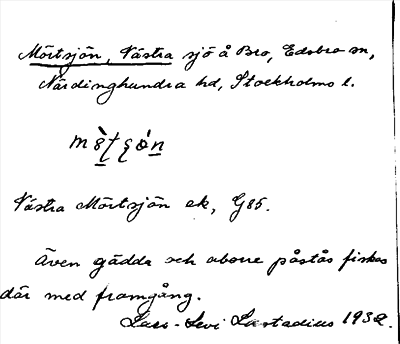 Mörtsjön, Västra sjö å Bro, Edsbro sn,
Närdinghundra hd, Stockholms l.
Västra Mörtsjön ek, G85.
Även gädda och aborre påstås fiskas
där med framgång.
Lars-Levi Læstadius 1932.